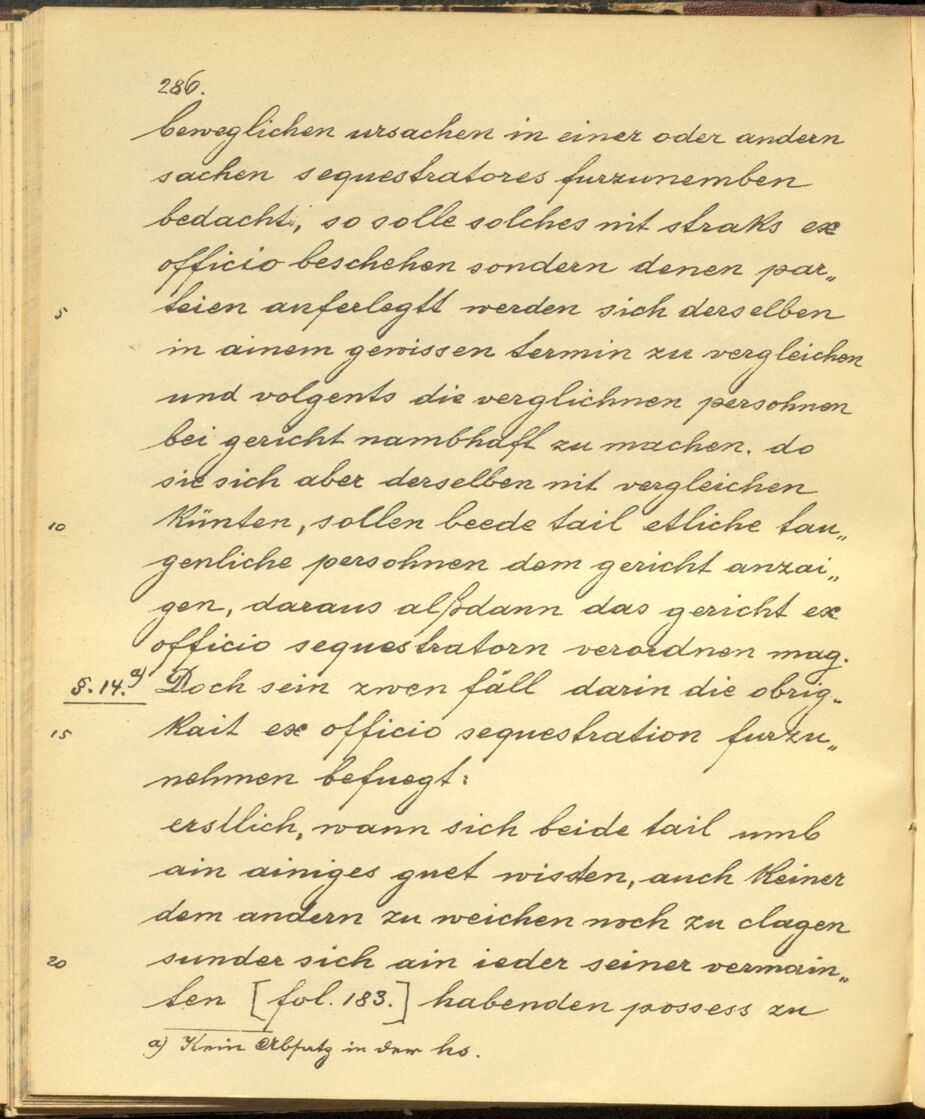 286.
beweglichen ursachen in einer oder andern
sachen sequestratores furzunemben
bedacht, so solle solches nit straks ex
officio beschehen sondern denen par„
teien auferlegtt werden sich derselben
5
in ainem gewissen termin zu vergleichen
und volgents die verglichnen persohnen
bei gericht nambhaft zu machen. do
sie sich aber derselben nit vergleichen
10 künten, sollen beede tail etliche tau„
genliche persohnen dem gericht anzai„
gen, daraus alßdann das gericht ex
officio sequestratorn verordnen mag.
§. 14. a) Doch sein zwen fäll darin die obrig„
15 kait ex officio sequestration furzu„
nehmen befuegt:
erstlich, wann sich beide tail umb
ain ainiges guet wissten, auch keiner
dem andern zu weichen noch zu clagen
20 sunder sich ain ieder seiner vermain„
ten [fol. 183.] habenden possess zu
a) Kein Absatz in der hs.